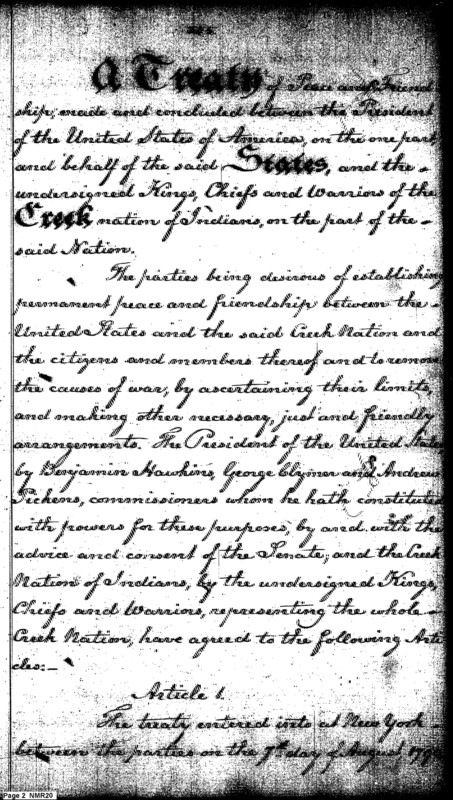 A Treaty of Peace and Friend
ship, made and concluded between the President
of the United States of America, on the one part
and behalf of the said States, and the
undersigned Kings, Chiefs and Warriors of the
Creek nation of Indians, on the part of the
said Nation.
The parties being desirous of establishing
permanent peace and friendship between the
United States and the said Creek Nation and
the citizens and members thereof and to remove
the causes of war, by ascertaining their limits,
and making other necessary, just and friendly
arrangements. The President of the United States
by Benjamin Hawkins, George Clymer and Andrew
Pickens, commissioners whom he hath constituted
with powers for these purposes, by and with the
advice and consent of the Senate; and the Creek
Nation of Indians, by the undersigned Kings,
Chiefs and Warriors, representing the whole
Creek Nation, have agreed to the following Arti
cles:—
Article 1.
The treaty entered into at New York
between the parties on the 7th day of August
Page 2 NMR20